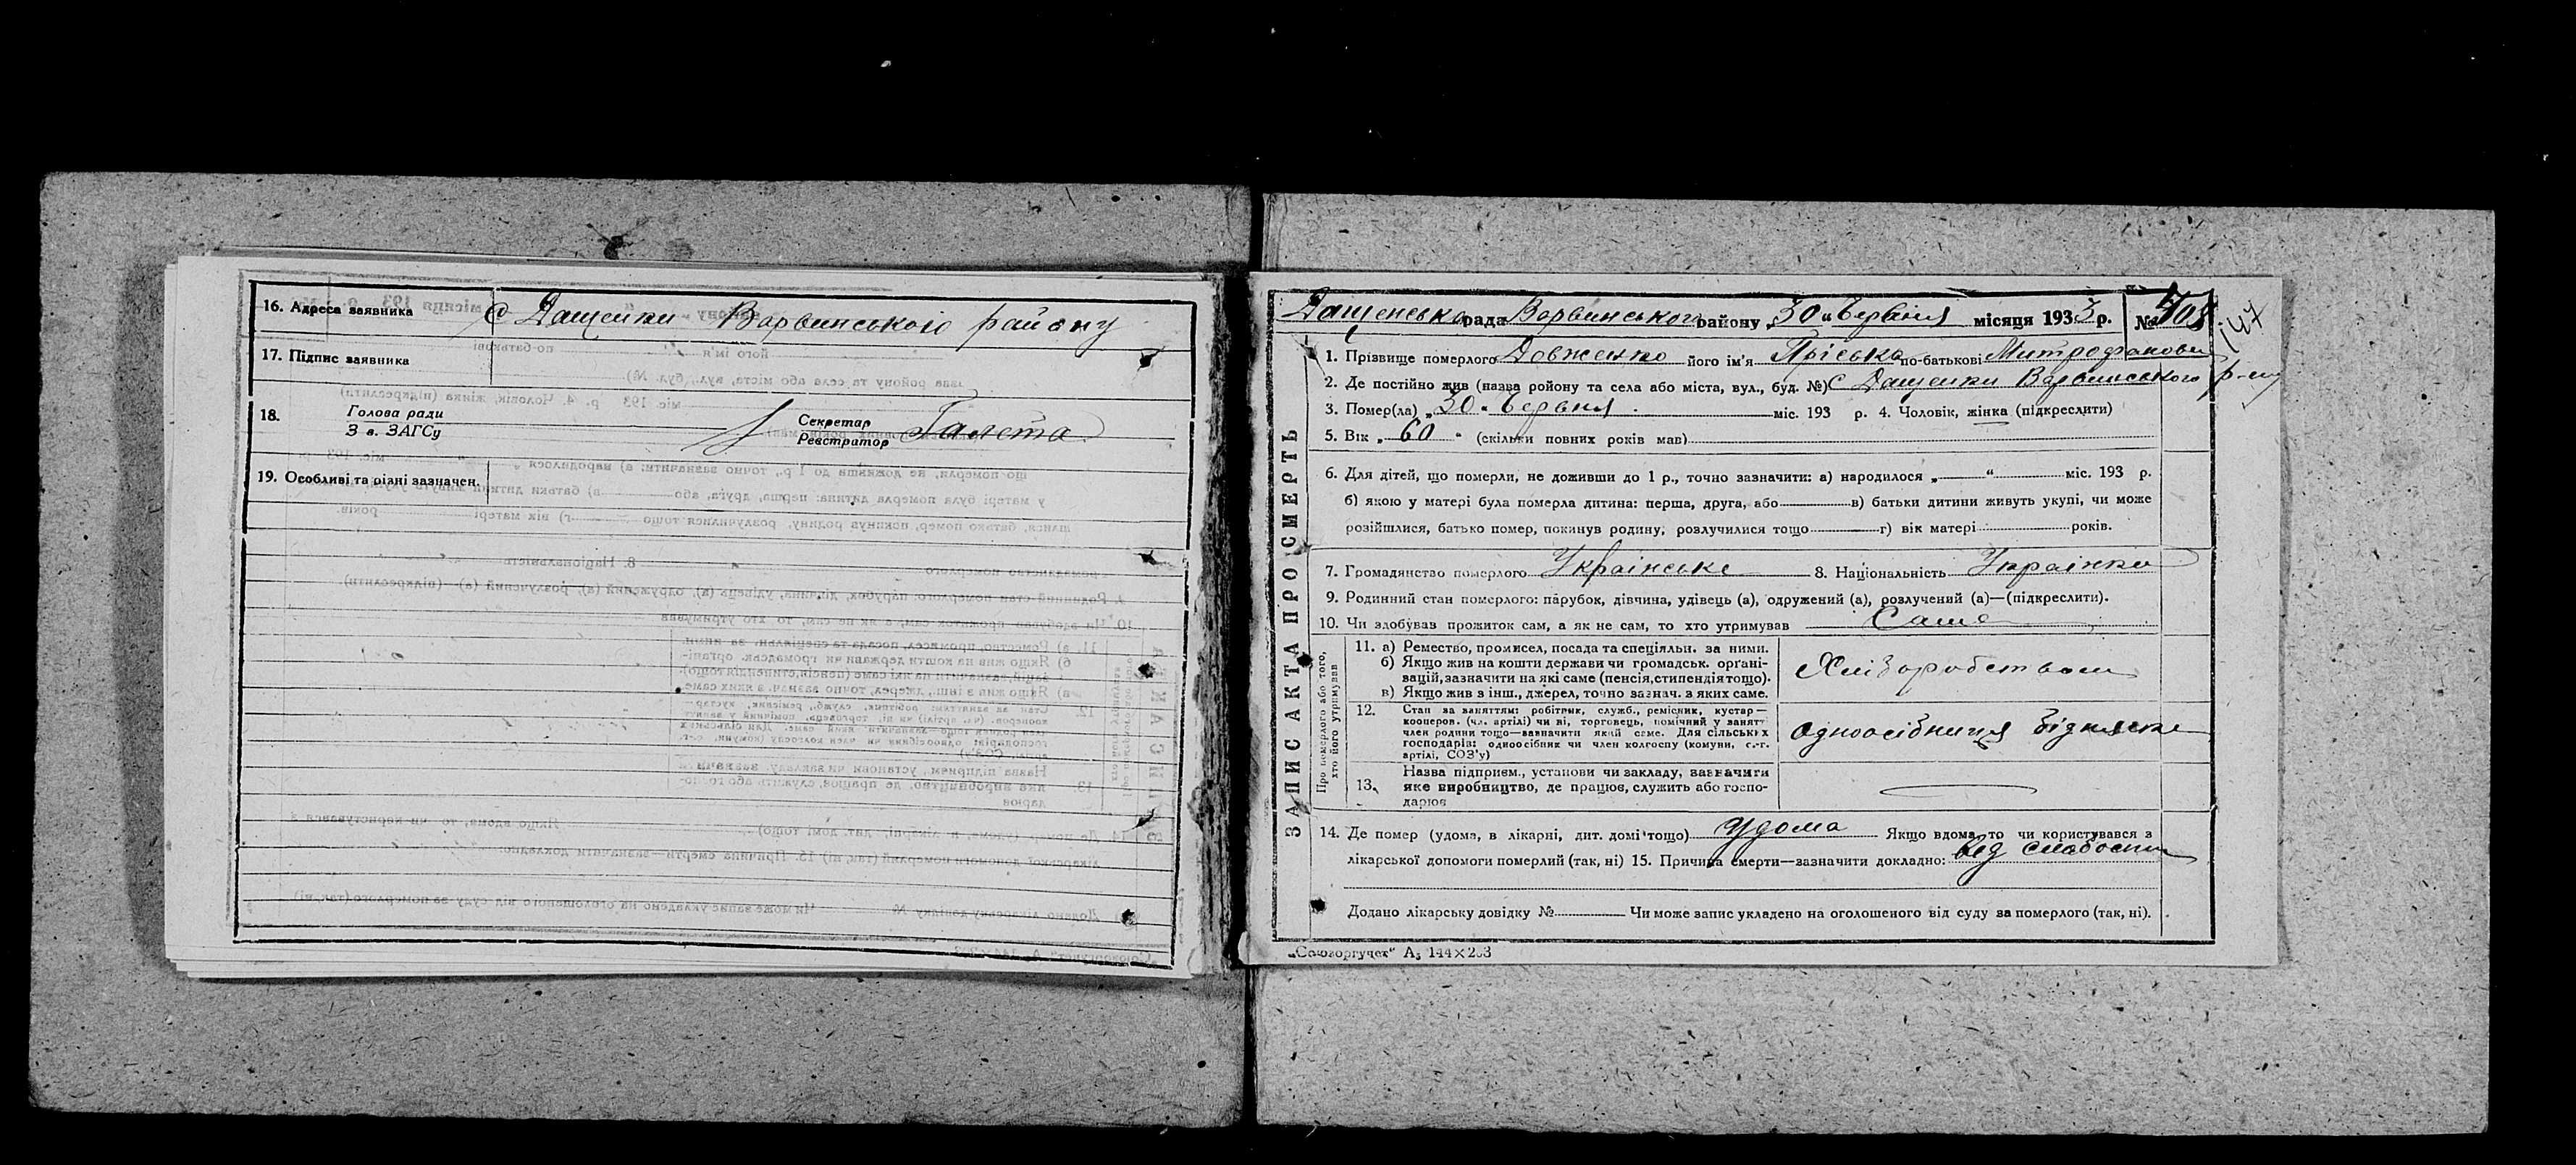 16. Адреса заявника с Дащенки Варвинського району
17. Підпис заявника
18. Голова ради
З в. ЗАГСу
Секретар
Реєстратор Галета
19. Особливі та різні зазначен.
Дащенська рада Варвинського району „30“ Червня місяця 1933 р. №
147
1. Прізвище померлого Довженко його ім'я Пріська по-батькові Митрофанови
2. Де постійно жив (назва ройону та села або міста, вул., буд. №) С Дащенки Варвинського р-ну
3. Помер(ла) „30“ Червня міс. 193 р. 4. Чоловік, жінка (підкреслити)
5. Вік „60“ (скільки повних років мав)
6. Для дітей, що померли, не доживши до 1 р., точно зазначити: а) народилося „ “ міс. 193 р.
б) якою у матері була померла дитина: перша, друга, або в) батьки дитини живуть укупі, чи може
розійшлися, батько помер, покинув родину, розлучилися тощо г) вік матері років.
7. Громадянство померлого Українське 8. Національність Українка
9. Родинний стан померлого: парубок, дівчина, удівець (а), одружений (а), розлучений (а)—(підкреслити).
10. Чи здобував прожиток сам, а як не сам, то хто утримував Сама
ЗАПИС АКТА ПРО СМЕРТЬ
Про померлого або того, хто його утримував
11. а) Ремество, промисел, посада та спеціяльн. за ними.
б) Якщо жив на кошти держави чи громадськ. органі-
зацій, зазначити на які саме (пенсія, стипендія тощо).
в) Якщо жив з інш., джерел, точно зазнач. з яких саме.
Хліборобством
12. Стан за заняттям: робітник, служб., ремісник, кустар—
кооперов. (чл. артілі) чи ні, торговець, помічний у занятт
член родини тощо—зазначити який саме. Для сільських
господарів: одноосібник чи член колгоспу (комуни, с.-г.
артілі, СОЗ'у)
Одноосібниця бідняцьке
13. Назва підприєм., установи чи закладу, зазначити
яке виробництво, де працює, служить або госпо-
дарює
14. Де помер (удома, в лікарні, дит. домі тощо) Удома Якщо вдома, то чи користувався з
лікарської допомоги померлий (так, ні) 15. Причина смерти—зазначити докладно: від слабости
Додано лікарську довідку № Чи може запис укладено на оголошеного від суду за померлого (так, ні).
„Союзоргучет“ А₅ 144×203